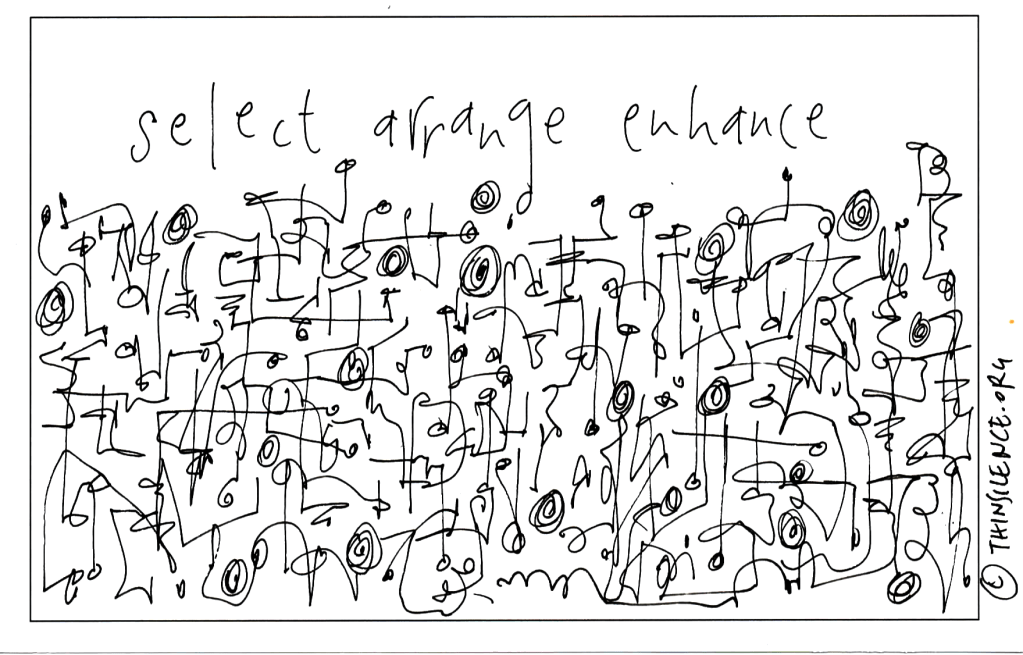 select arrange enhance
© THINSILENCE.ORG